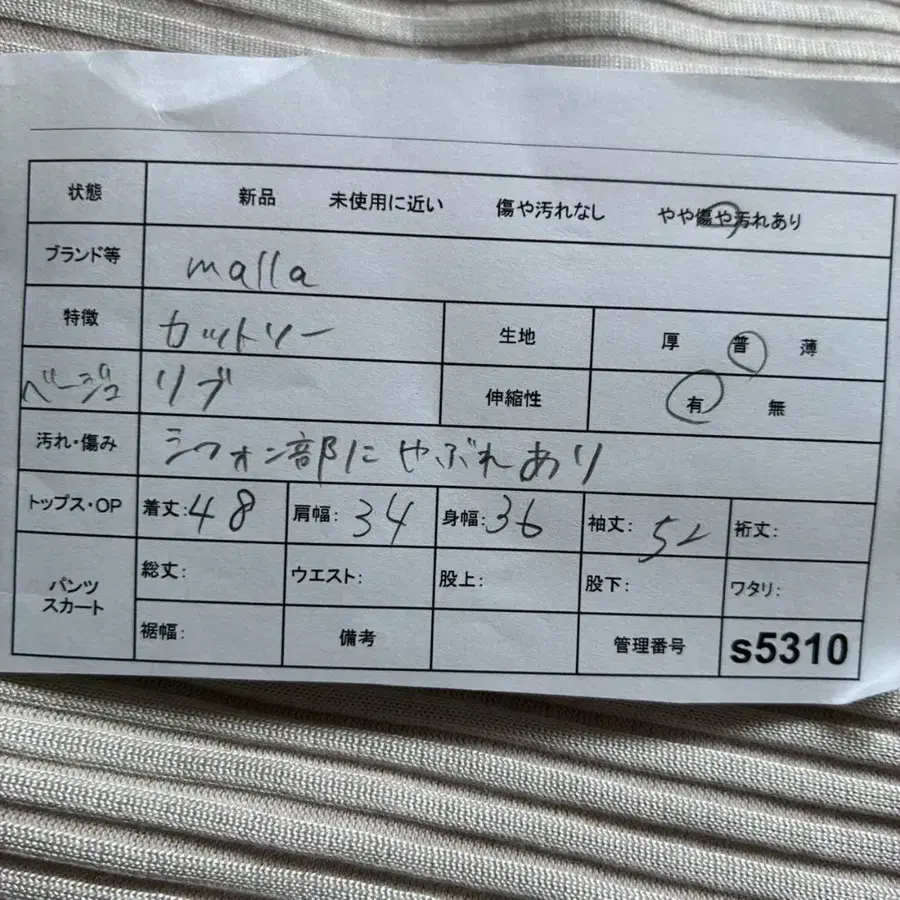 状態 新品 未使用に近い 傷や汚れなし やや傷や汚れあり
ブランド等 malla
特徴 カットソー 生地 厚 普 薄
ベージュ リブ 伸縮性 有 無
汚れ・傷み シフォン部にやぶれあり
トップス・OP 着丈:48 肩幅:34 身幅:36 袖丈:52 裄丈:
パンツ スカート 総丈: ウエスト: 股上: 股下: ワタリ:
裾幅: 備考 管理番号 s5310